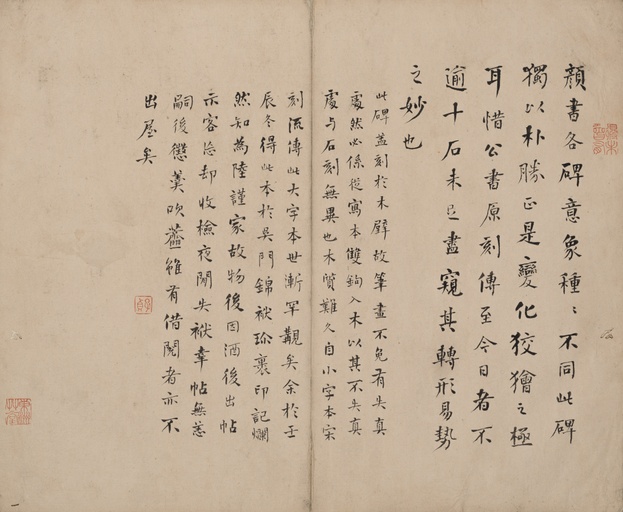 顏書各碑意象種〻不同此碑
獨以朴勝正是變化狡獪之極
耳惜公書原刻傳至今日者不
逾十石未足盡窺其轉形易勢
之妙也
此碑蓋刻於木壁故筆畫不免有失真
處然必係從寫本雙鉤入木以其不失真
處与石刻無異也木質難久自小字本宋
刻流傳此大字本世漸罕觀矣余於壬
辰冬得此本於吳門錦袱珍裹印記爛
然知為陸謹家故物後因酒後出帖
示客忘却收檢夜間失袱幸帖無恙
嗣後懲羹吹虀雖有借閱者亦不
出屋矣